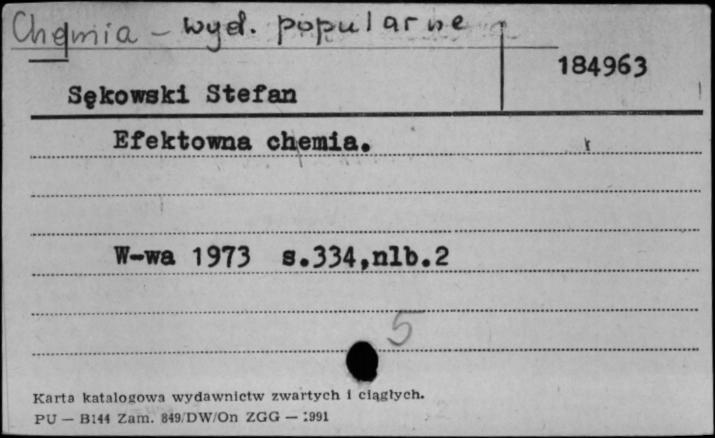 Chemia - wyd. popularne
184963
Sękowski Stefan
Efektowna chemia.
W-wa 1973 s.334,nlb.2
5
Karta katalogowa wydawnictw zwartych i ciągłych.
PU — B144 Zam. 849/DW/On ZGG — 1991